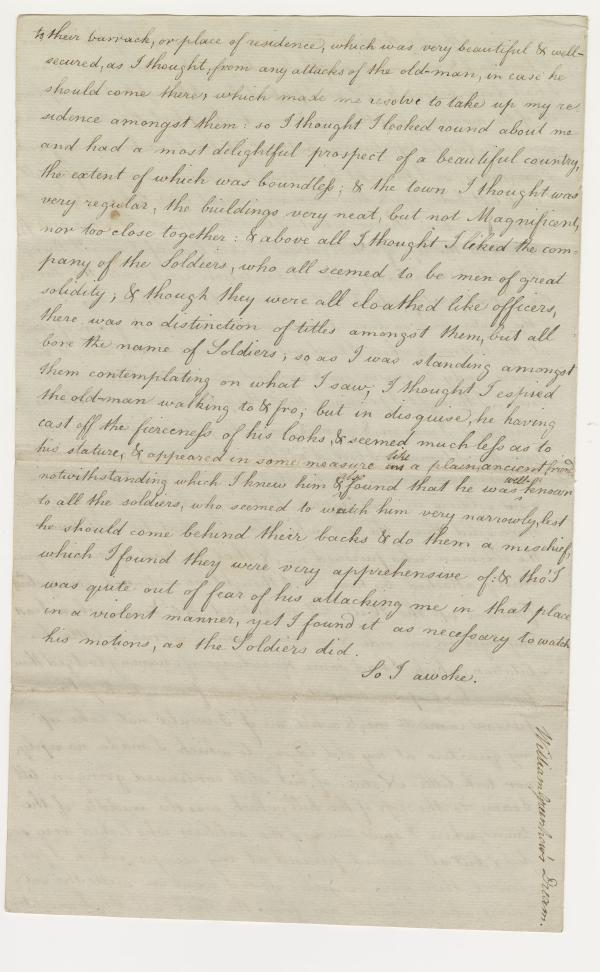 to their barrack, or place of residence, which was very beautiful & well-
secured, as I thought, from any attacks of the old-man, in case he
should come there, which made me resolve to take up my re-
sidence amongst them: so I thought I looked round about me
and had a most delightful prospect of a beautiful country,
the extent of which was boundless; & the town I thought was
very regular, the buildings very neat, but not Magnificent,
nor too close together: & above all I thought I liked the com-
pany of the Soldiers, who all seemed to be men of great
solidity; & though they were all cloathed like officers,
there was no distinction of titles amongst them, but all
bore the name of Soldiers; so as I was standing amongst
them contemplating on what I saw, I thought I espied
the old-man walking to & fro; but in disguise, he having
cast off the fierceness of his looks, & seemed much less as to
his stature, & appeared in some measure like a plain, ancient friend
notwithstanding which I knew him & also found that he was well-known
to all the soldiers, who seemed to watch him very narrowly, lest
he should come behind their backs & do them a mischief,
which I found they were very apprehensive of: & tho' I
was quite out of fear of his attacking me in that place
in a violent manner, yet I found it as necessary to watch
his motions, as the Soldiers did.
So I awoke.
William Greenhow's Dream.